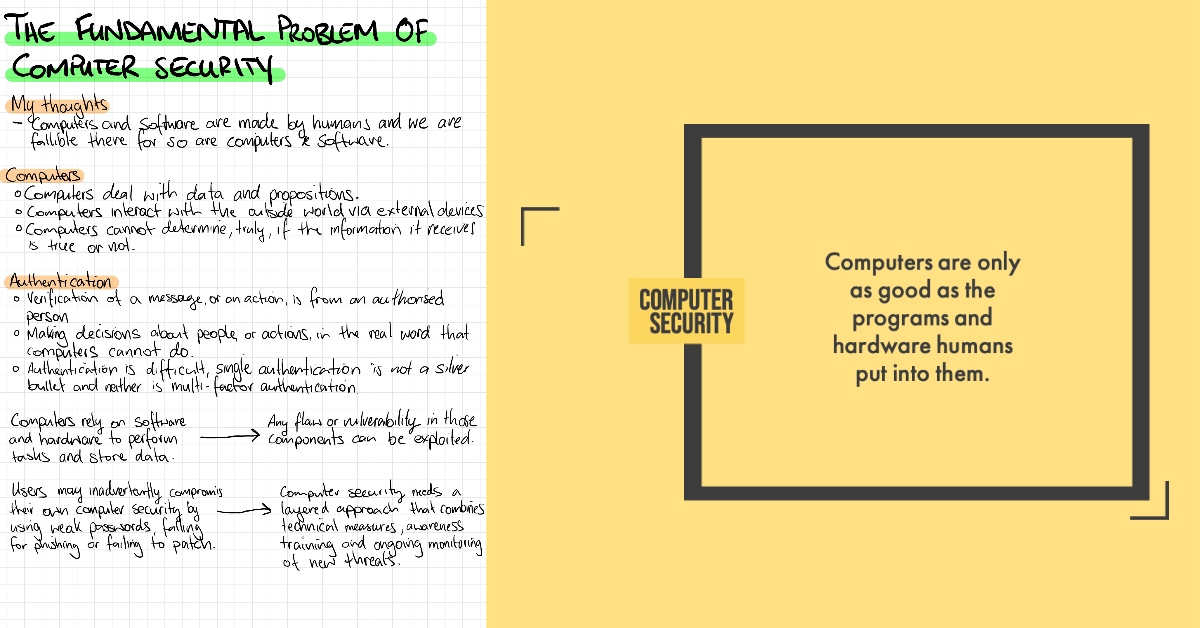 THE FUNDAMENTAL PROBLEM OF
COMPUTER SECURITY
My thoughts
- Computers and software are made by humans and we are
fallible there for so are computers & software.
Computers
o Computers deal with data and propositions.
o Computers interact with the outside world via external devices
o Computers cannot determine, truly, if the information it receives
is true or not.
Authentication
o Verification of a message, or an action, is from an authorised
person
o Making decisions about people, or actions, in the real word that
computers cannot do.
o Authentication is difficult, single authentication is not a silver
bullet and neither is multi-factor authentication.
Computers rely on software
and hardware to perform
tasks and store data.
Any flaw or vulnerability in those
components can be exploited.
Users may inadvertantly compromis
their own computer security by
using weak passwords, falling
for phishing or failing to patch.
Computer security needs a
layered approach that combines
technical measures, awareness
training and ongoing monitoring
of new threats.
COMPUTER
SECURITY
Computers are only
as good as the
programs and
hardware humans
put into them.